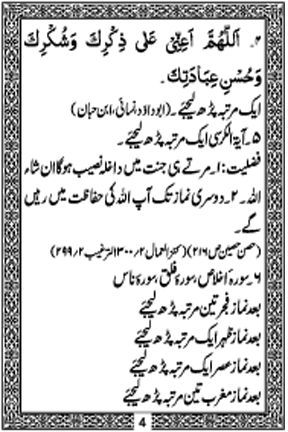 ۴۔ اَللّٰهُمَّ اَعِنِّىْ عَلٰى ذِكْرِكَ وَشُكْرِكَ
وَحُسْنِ عِبَادَتِكَ۔
ایک مرتبہ پڑھ لیجئے۔ (ابوداؤد، نسائی، ابن حبان)
۵۔ آیۃ الکرسی ایک مرتبہ پڑھ لیجئے۔
فضیلت: ۱۔ مرتے ہی جنت میں داخلہ نصیب ہوگا ان شاء
اللہ۔ ۲۔ دوسری نماز تک آپ اللہ کی حفاظت میں رہیں
گے۔
(حصن حصین ص ۲۱۶) (کنز العمال ۲/۳۰۰ الترغیب ۲/۲۹۹)
۶۔ سورۂ اخلاص، سورۂ فلق، سورۂ ناس
بعد نماز فجر تین مرتبہ پڑھ لیجئے
بعد نماز ظہر ایک مرتبہ پڑھ لیجئے
بعد نماز عصر ایک مرتبہ پڑھ لیجئے
بعد نماز مغرب تین مرتبہ پڑھ لیجئے
4